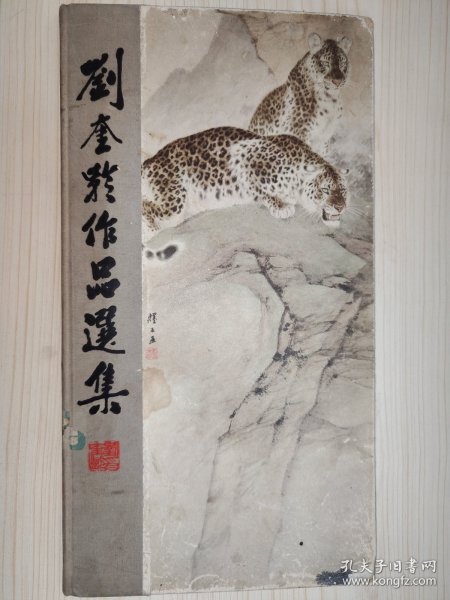 劉奎齡作品選集
耀辰画
孔夫子旧书网
www.kongfz.com